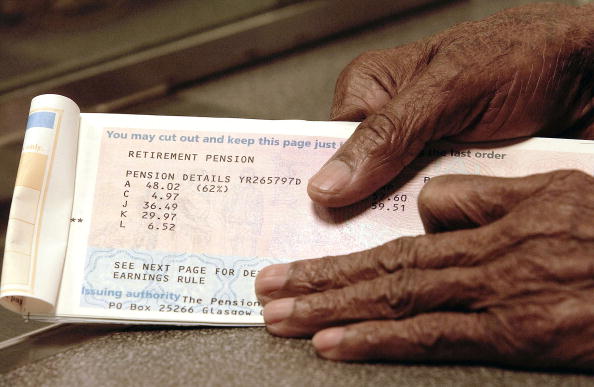 only.
You may cut out and keep this page just the last order
RETIREMENT PENSION
PENSION DETAILS YR265797D
A 48.02 (62%)
C 4.97
J 36.49 .60
** K 29.97 59.51
L 6.52
SEE NEXT PAGE FOR
EARNINGS RULE
Issuing authority The Pension
PO Box 25266 Glasgow